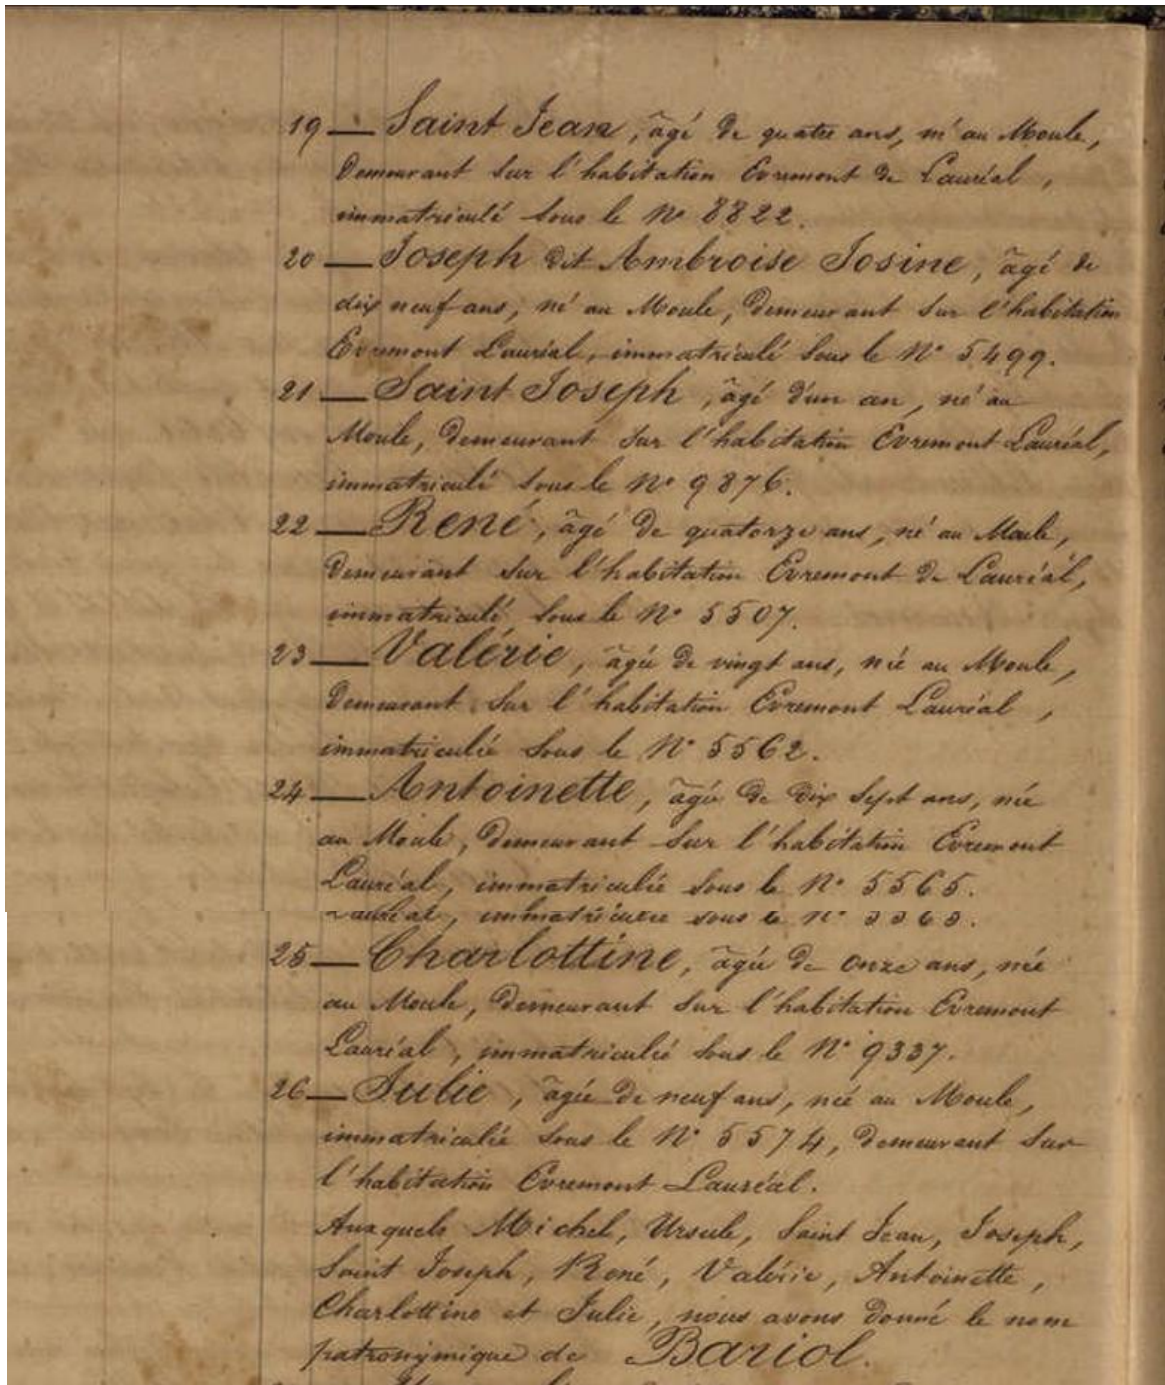 19 — Saint Jean, âgé de quatre ans, né au Moule,
demeurant sur l'habitation Evremont de Lauréal,
immatriculé sous le No 8822.
20 — Joseph dit Ambroise Josine, âgé de
dix neuf ans, né au Moule, demeurant sur l'habitation
Evremont Lauréal, immatriculé sous le No 5499.
21 — Saint Joseph, âgé d'un an, né au
Moule, demeurant sur l'habitation Evremont Lauréal,
immatriculé sous le No 9876.
22 — René, âgé de quatorze ans, né au Moule,
demeurant sur l'habitation Evremont de Lauréal,
immatriculé sous le No 5507.
23 — Valérie, âgée de vingt ans, née au Moule,
demeurant sur l'habitation Evremont Lauréal,
immatriculée sous le No 5562.
24 — Antoinette, âgée de dix sept ans, née
au Moule, demeurant sur l'habitation Evremont
Lauréal, immatriculée sous le No 5565.
Lauréal, immatriculée sous le No 5565.
25 — Charlottine, âgée de onze ans, née
au Moule, demeurant sur l'habitation Evremont
Lauréal, immatriculée sous le No 9337.
26 — Julie, âgée de neuf ans, née au Moule,
immatriculée sous le No 5574, demeurant sur
l'habitation Evremont Lauréal.
Auxquels Michel, Ursule, Saint Jean, Joseph,
Saint Joseph, René, Valérie, Antoinette,
Charlottine et Julie, nous avons donné le nom
patronymique de Bariol.